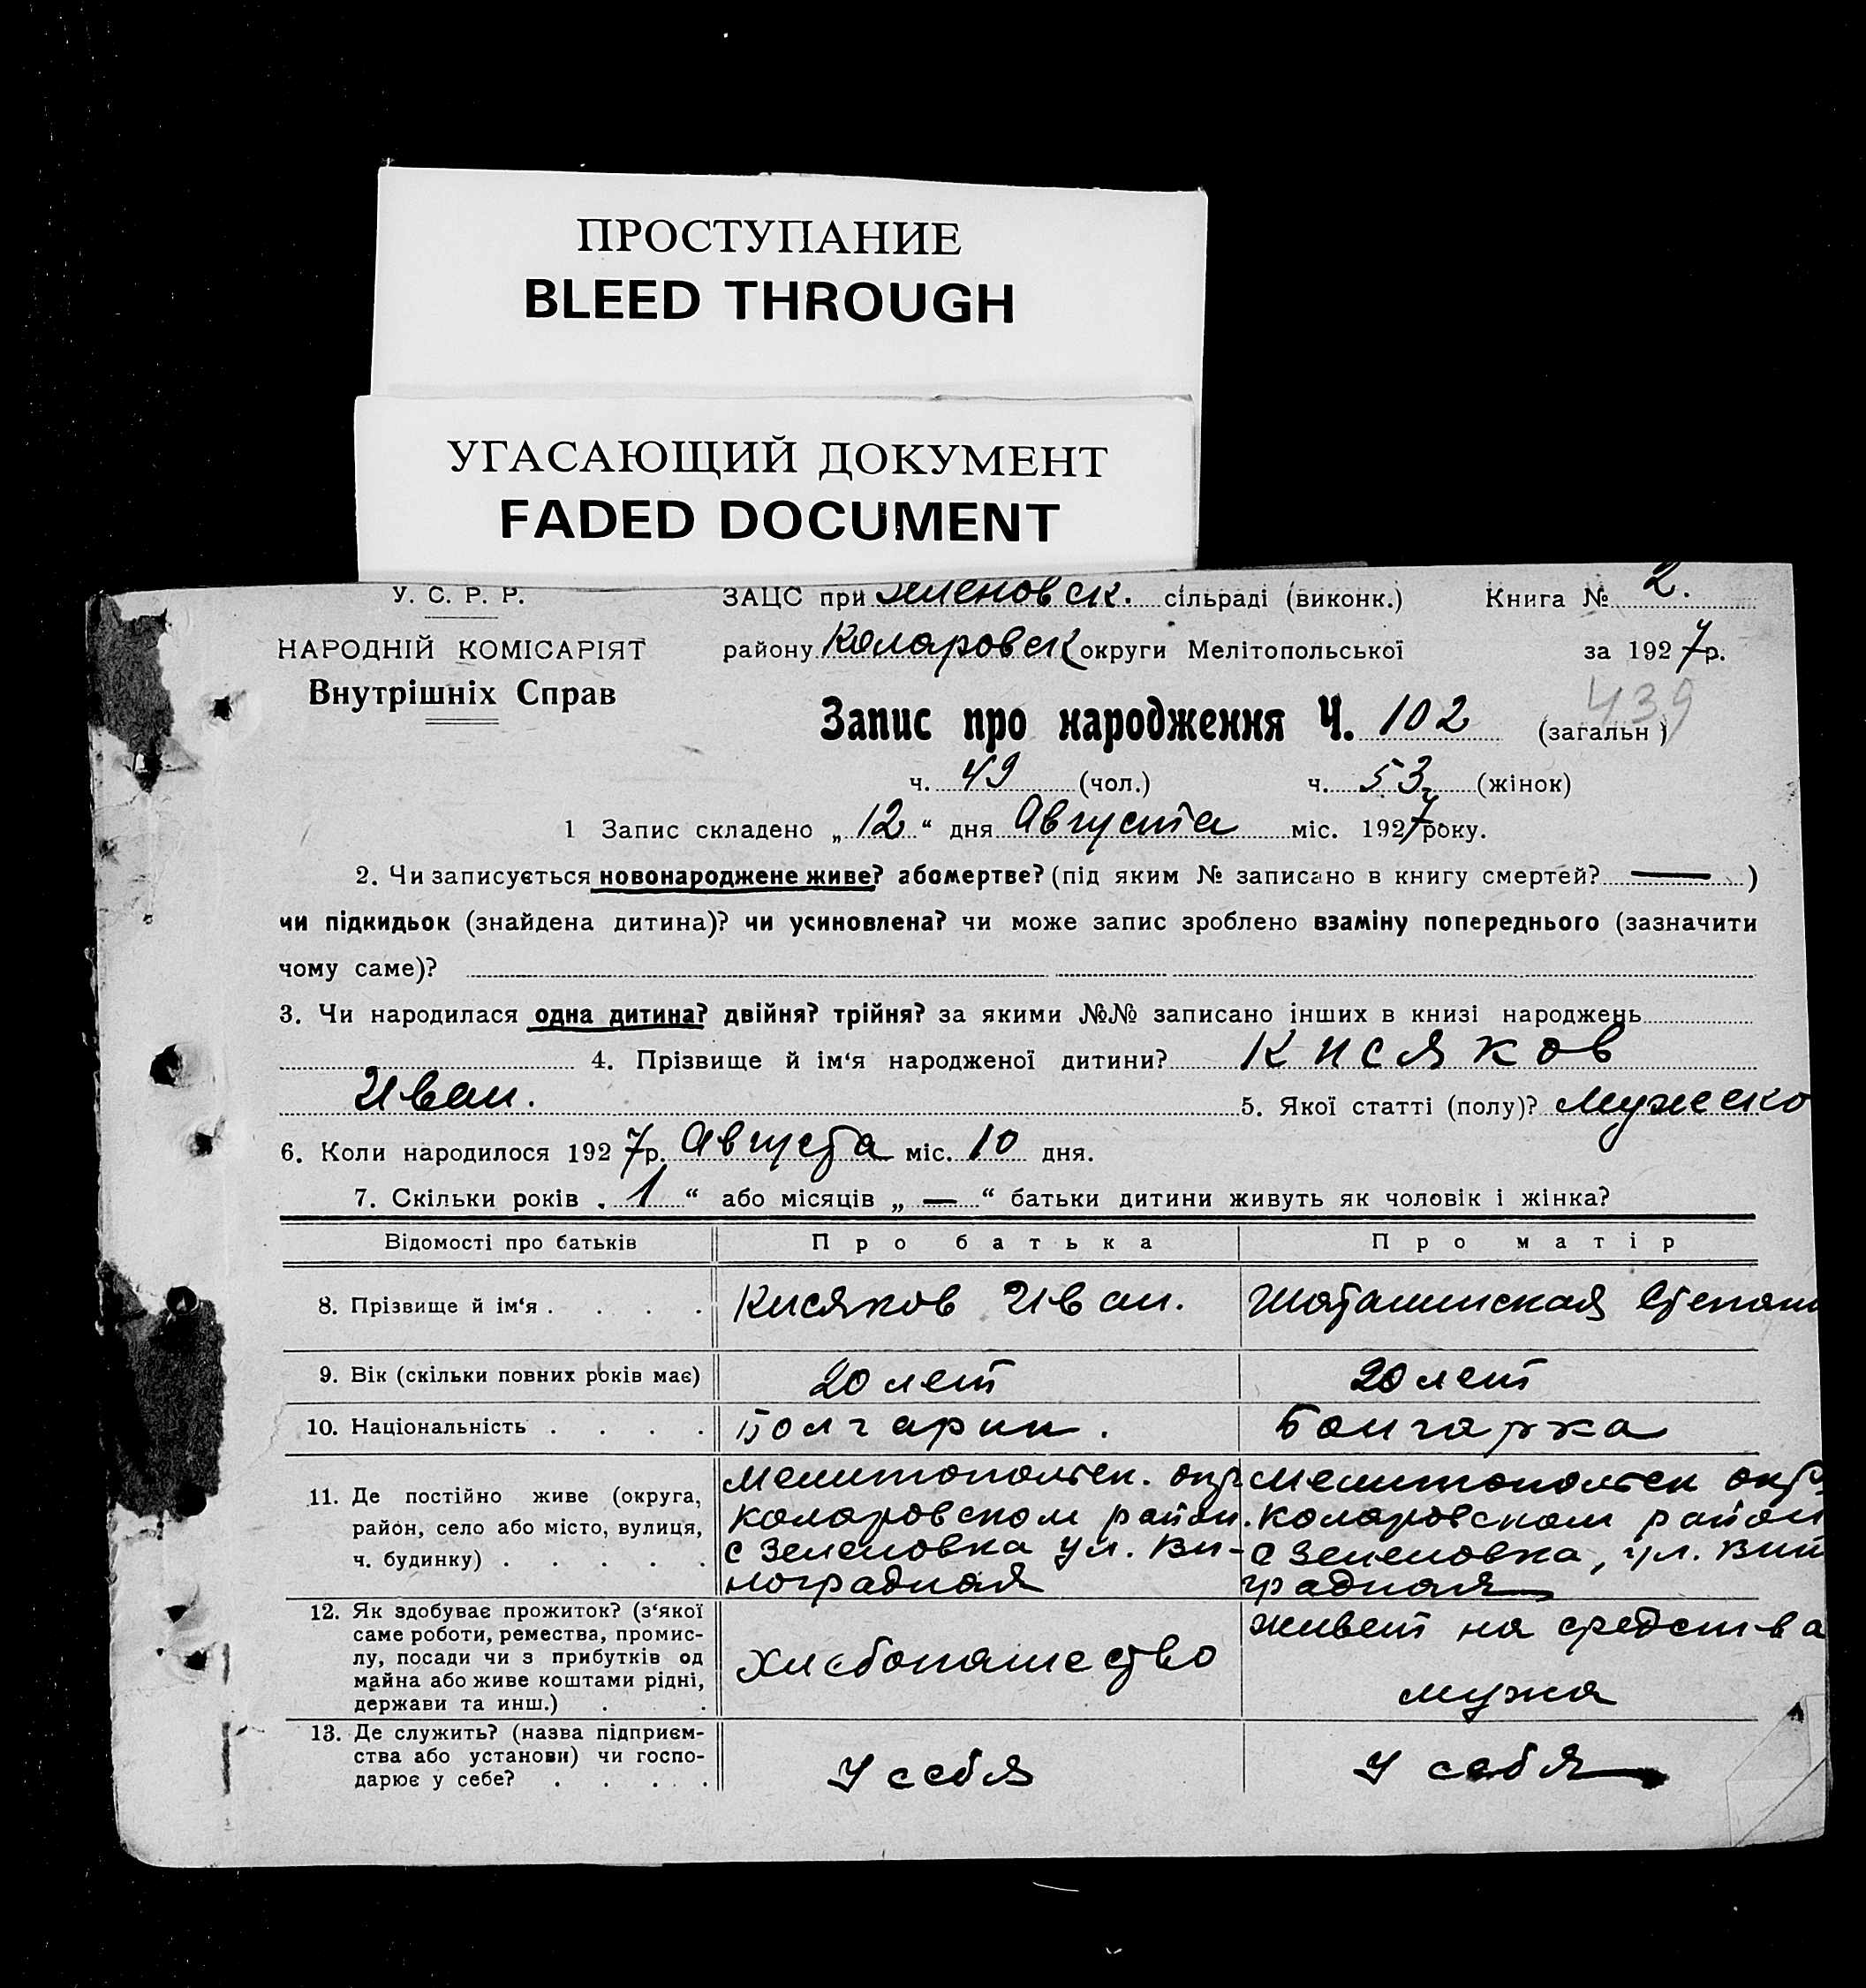 ПРОСТУПАНИЕ
BLEED THROUGH
УГАСАЮЩИЙ ДОКУМЕНТ
FADED DOCUMENT
У. С. Р. Р.
ЗАЦС при Зеленовск. сільраді (виконк.) Книга № 2.
НАРОДНІЙ КОМІСАРІЯТ
району Коларовск округи Мелітопольської за 1927р.
Внутрішніх Справ
439
Запис про народження Ч. 102 (загальн)
ч. 49 (чол.) ч. 53 (жінок)
1 Запис складено „12“ дня Августа міс. 1927року.
2. Чи записується новонароджене живе? або мертве? (під яким № записано в книгу смертей? — )
чи підкидьок (знайдена дитина)? чи усиновлена? чи може запис зроблено взаміну попереднього (зазначити
чому саме)?
3. Чи народилася одна дитина? двійня? трійня? за якими №№ записано інших в книзі народжень
4. Прізвище й ім‘я народженої дитини? Кисяков
Иван. 5. Якої статті (полу)? Мужеско
6. Коли народилося 1927р. Августа міс. 10 дня.
7. Скільки років „1“ або місяців „—“ батьки дитини живуть як чоловік і жінка?
Відомості про батьків Про батька Про матір
8. Прізвище й ім‘я . . . . Кисяков Иван.
9. Вік (скільки повних років має) 20 лет 20 лет
10. Національність . . . . Болгарин. Болгарка
11. Де постійно живе (округа,
район, село або місто, вулиця,
ч. будинку) . . . . .
Мелитопольск. окр
Коларовском район.
с Зеленовка ул. Ви-
ноградная
Мелитопольск окр.
Коларовском район
с Зеленовка, ул. Вин
градная
12. Як здобуває прожиток? (з‘якої
саме роботи, ремества, промис-
лу, посади чи з прибутків од
майна або живе коштами рідні,
держави та инш.) . .
Хлебопашество
живет на средства
мужа
13. Де служить? (назва підприєм-
ства або установи) чи госпо-
дарює у себе? . . . . .
У себя
У себя